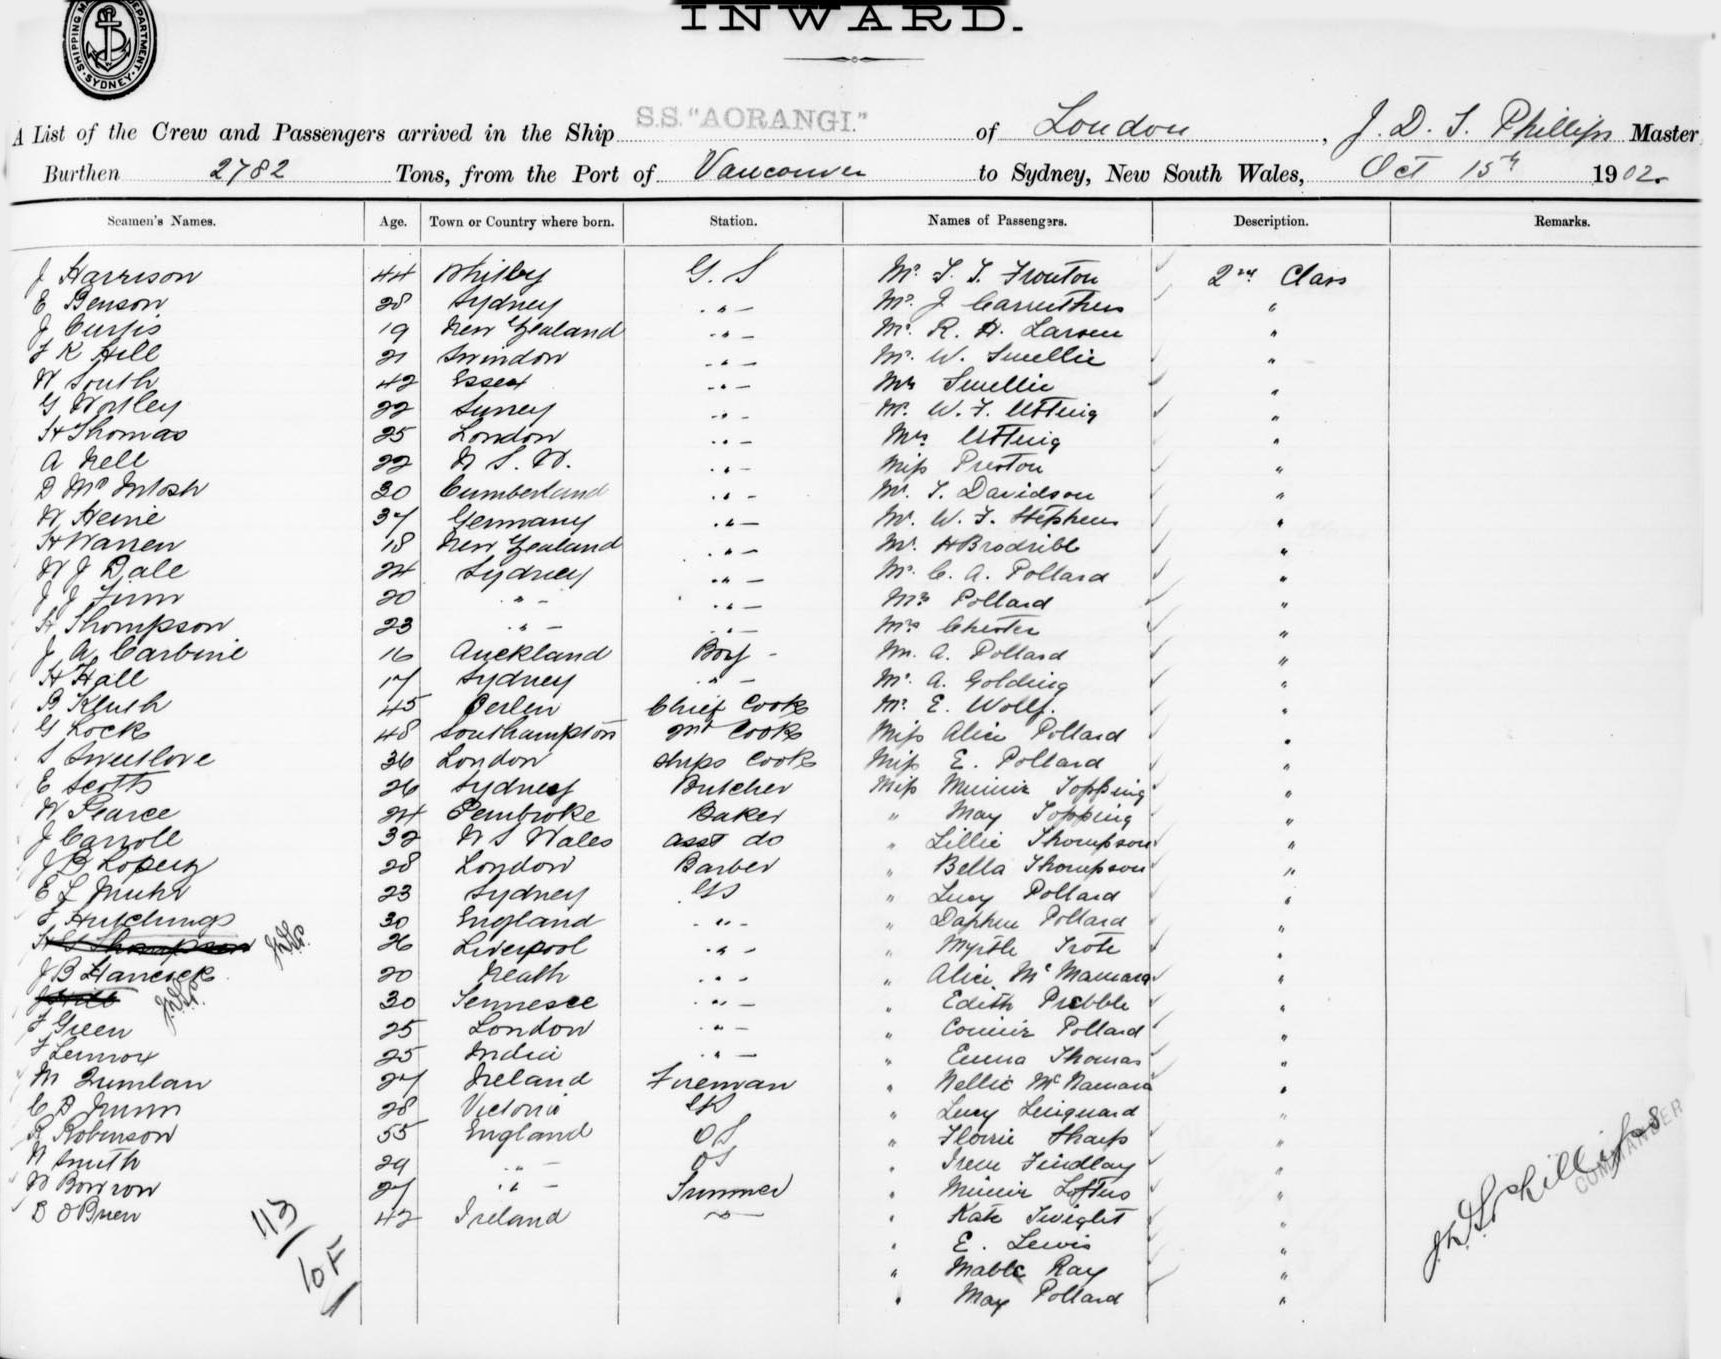 SHIPPING MA DEPARTMENT. SYDNEY.
INWARD.
A List of the Crew and Passengers arrived in the Ship S.S. "AORANGI." of London, J. D. S. Phillips Master
Burthen 2782 Tons, from the Port of Vancouver to Sydney, New South Wales, Oct 15th 1902.
Seamen's Names. Age. Town or Country where born. Station. Names of Passengers. Description. Remarks.
J Harrison 44 Whitby G. S Mr. 2nd Class
E Benson 28 Sydney " Mr. J Carruthers "
J Curtis 19 New Zealand " Mr. R. H. Larsen "
F K Hill 21 Swindon " Mr. W. Smellie "
W South 42 Essex " Mrs Smellie "
G Wortley 22 Surrey " Mr. W. F. Utting "
H Thomas 25 London " Mrs Utting "
A Nell 22 N. S. W. " Miss Preston "
D McIntosh 30 Cumberland " Mr. T. Davidson "
W Heine 37 Germany " Mr. W. F. Stephens "
H Warren 18 New Zealand " Mr. H Brodribb "
W J Dale 24 Sydney " Mr. C. A. Pollard "
J J Finn 20 " " Mrs Pollard "
H Thompson 23 " " Mrs Chester "
J A Carbine 16 Auckland Boy Mr. A. Pollard "
H Hall 17 Sydney " Mr. A. Golding "
B 45 Chief Cook Mr. E. Wolff. "
G Lock 48 Southampton 2nd Cook Miss Alice Pollard "
S Sweetlove 36 London Ships Cook Miss E. Pollard "
E Scott 26 Sydney Butcher Miss Minnie Topping "
W Pearce 24 Pembroke Baker " May Topping "
J Carroll 32 N S Wales asst do " Lillie Thompson "
J B 28 London Barber " Bella Thompson "
E L 23 Sydney GS " Lucy Pollard "
F Hutchings 30 England " " Daphne Pollard "
Thompson 26 Liverpool " " Myrtle Trott "
J B Hancock 20 Neath " " Alice McNamara "
J Hill 30 Tennesee " " Edith Prebble "
F Green 25 London " " Connie Pollard "
F Lennox 25 India " " Emma Thomas "
M Quinlan 27 Ireland Fireman " Nellie McNamara "
C B Nunn 28 Victoria " Lucy "
R Robinson 55 England OS " Florrie Sharp "
W Smith 29 " OS " Irene Findlay "
W Bowron 27 " Trimmer " Minnie Loftus "
B O'Brien 42 Ireland " " Kate "
" E. Lewis "
" Mable Ray "
" May Pollard "
113
10F
J. D. S. Phillips
COMMANDER